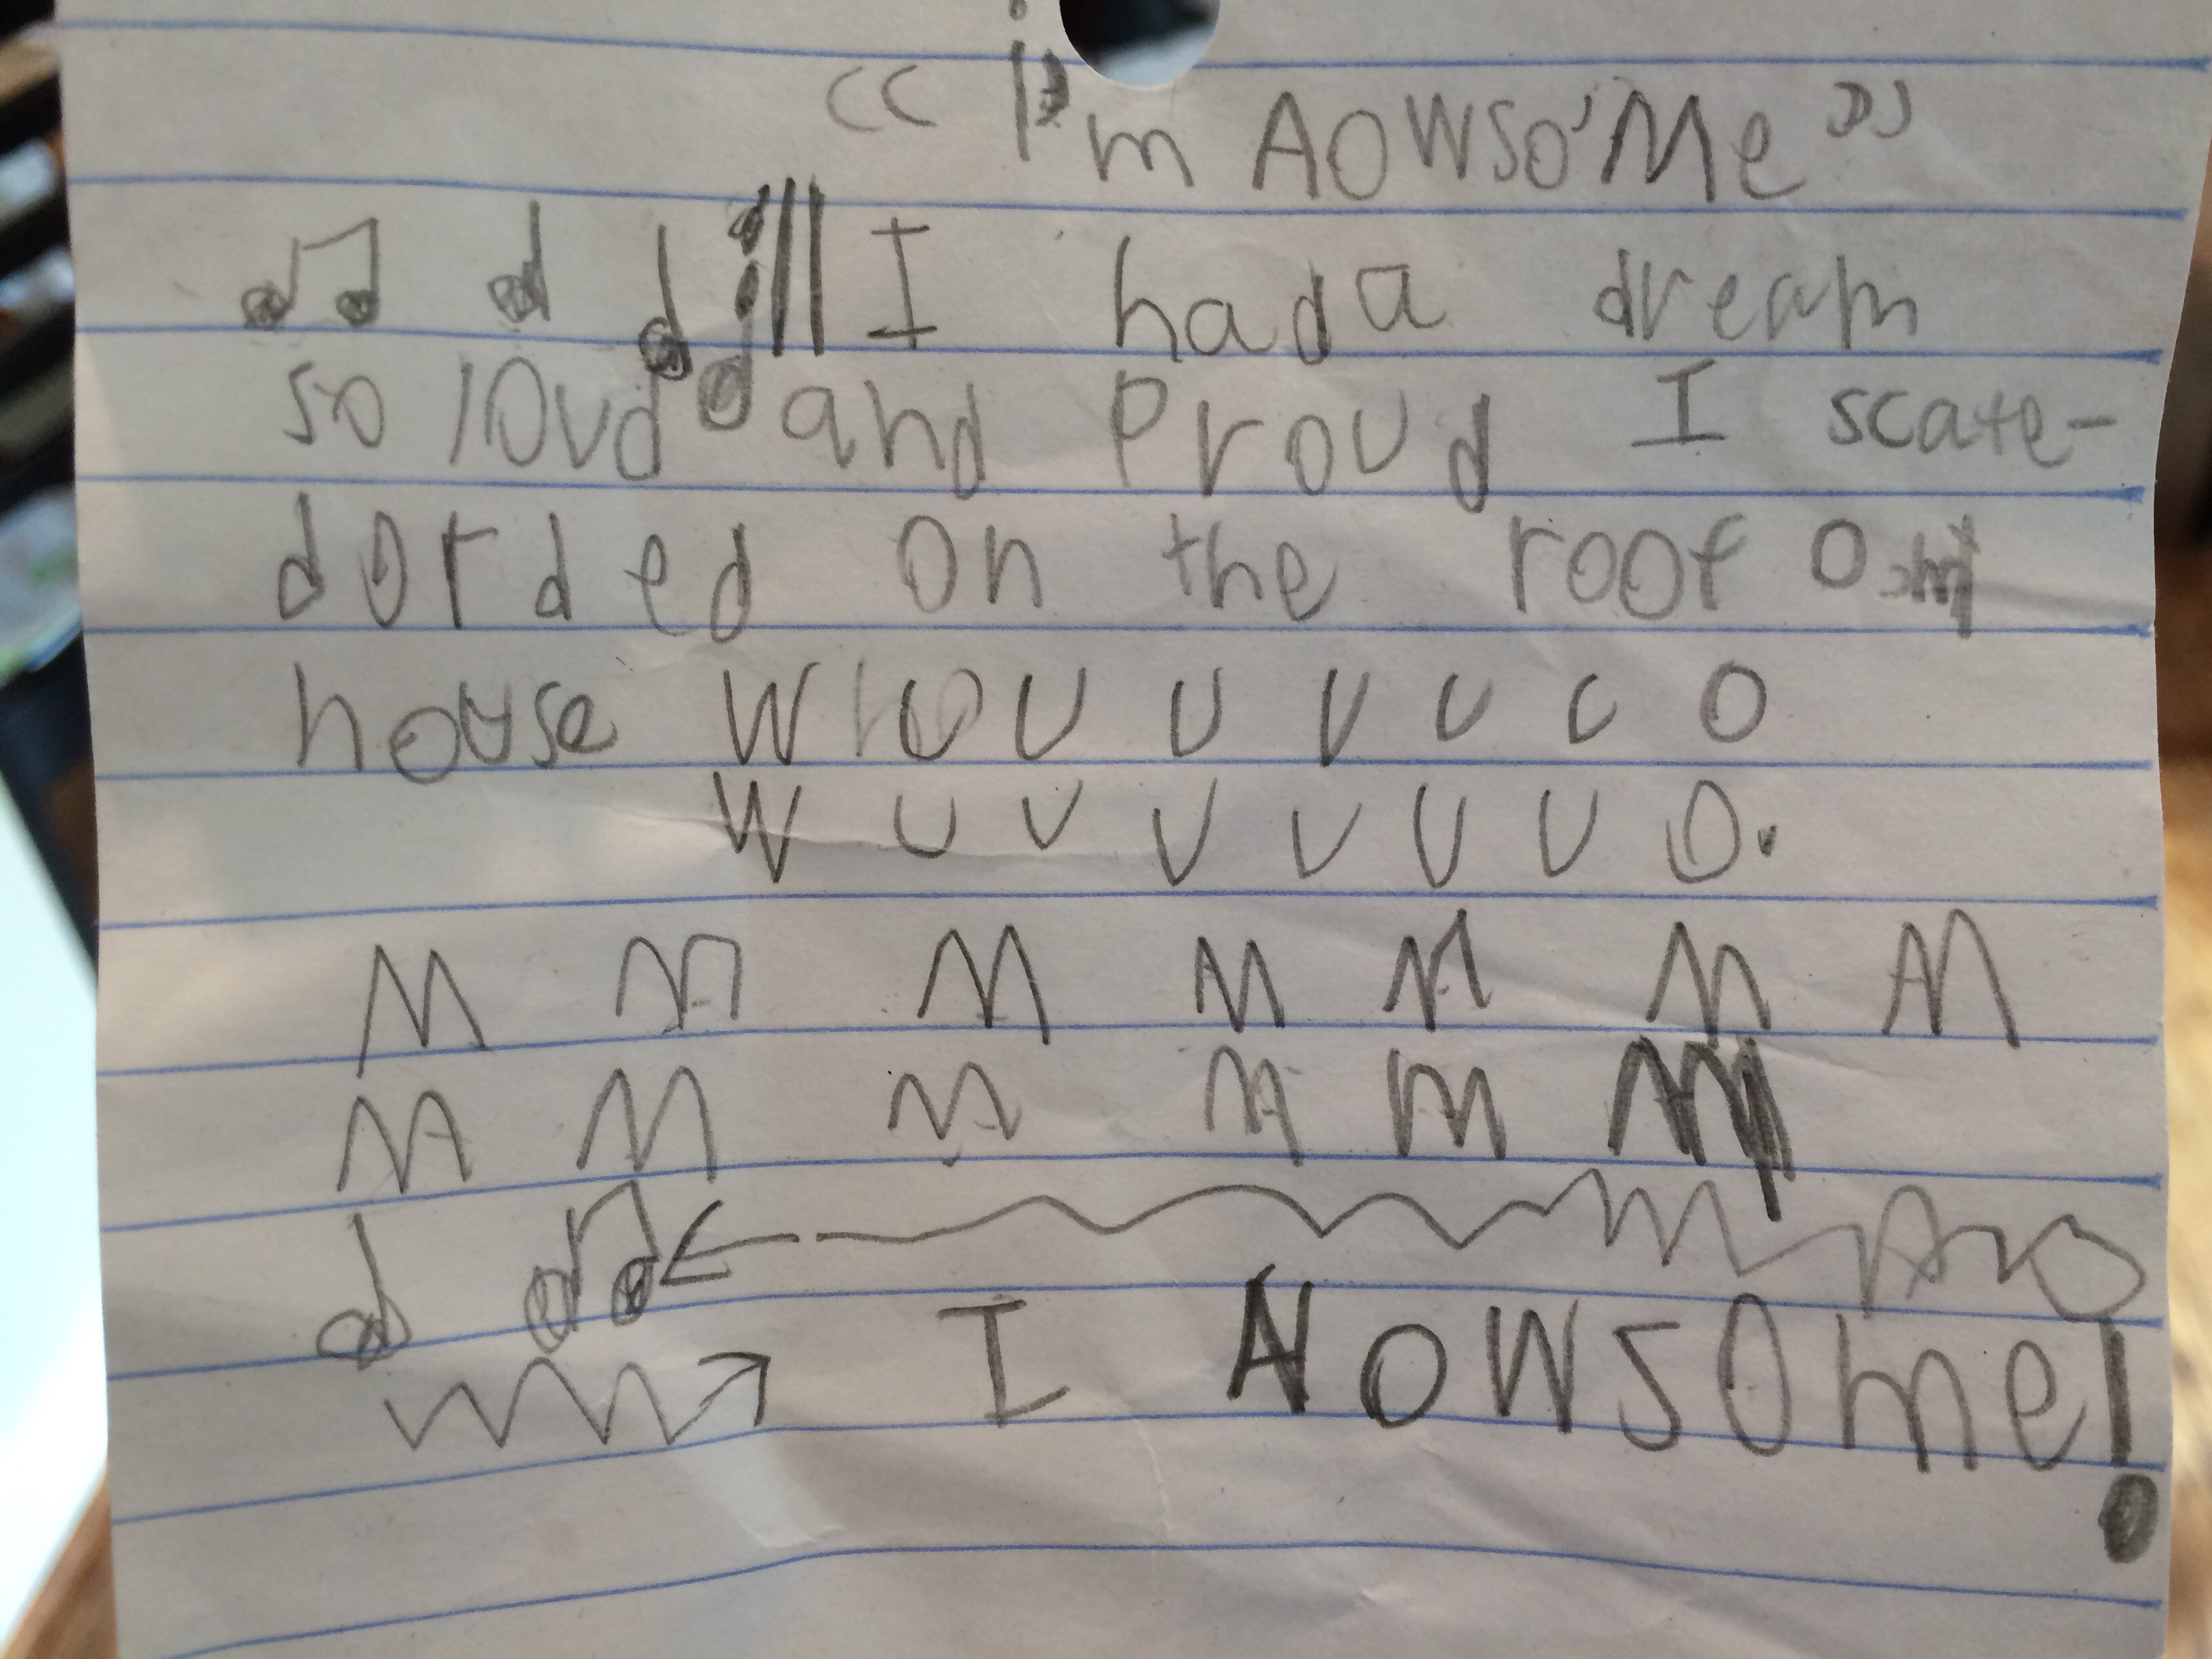 "I'm AOWSO'Me"
I had a dream
so loud and Proud I scate-
dorded on the roof O
house W U U U U U U O
W U U U U U U O.
M M M M M M M
M M M M M M
I AOWSOme!